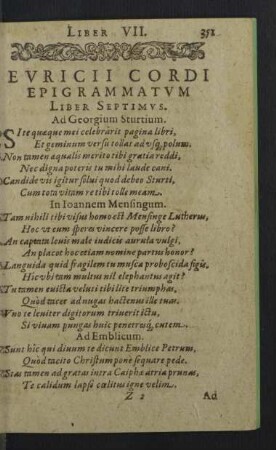 LIBER VII. 358
EVRICII CORDI
EPIGRAMMATVM
LIBER SEPTIMVS.
Ad Georgium Sturtium.
SIte quaque mei celebrârit pagina libri,
Et geminum versu tollat ad vsq; polum.
Non tamen aqualis merito tibi gratia reddi,
Nec digna poteris tu mihi laude cani.
Candide vii igitur solui quod debeo Sturti,
Cum tota vitam re tibi tolle meam.
In Ioannem Mensingum.
Tam nihili tibi visus homo est Mensinge Lutherus,
Hoc vt eum speres vincere posse libro?
An captum leui male iudicis aurula vulgi,
An placet hoc etiam nomine partus honor?
Languida quid fragilem tu musca proboscida figis,
Hic vbi tam multus nil elephantus agit?
Tu tamen euicta veluti tibi lite triumphas,
Quòd tacet ad nugas hactenus ille tuas.
Vno te leuiter digitorum triuerit ictu,
Si viuam pungas huic penetresq; cutem.
Ad Emblicum.
Sunt hîc qui diuum te dicunt Emblice Petrum,
Quòd tacito Christum pone sequare pede.
Stas tamen ad gratas intra Caiphæ atria prunas,
Te calidum lapso cœlitus igne velim.
Z 2 Ad